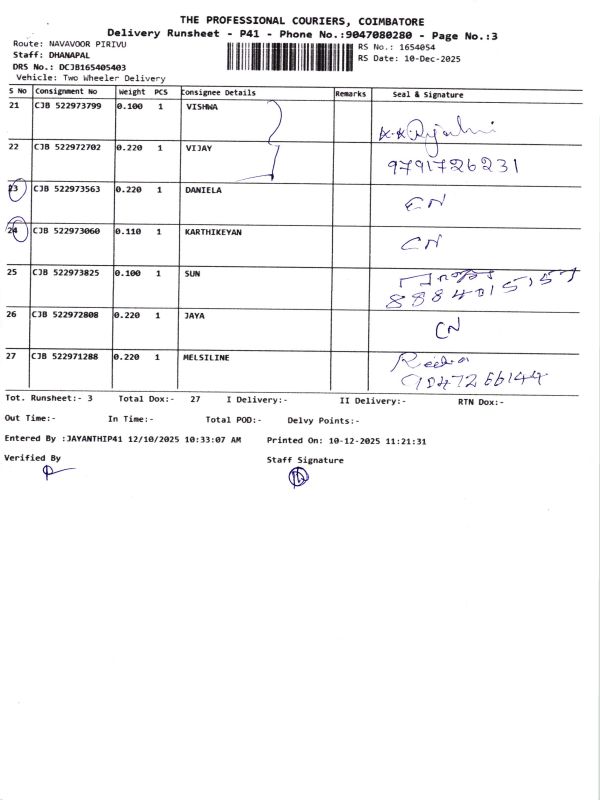 THE PROFESSIONAL COURIERS, COIMBATORE
Delivery Runsheet - P41 - Phone No.:9047080280 - Page No.:3
Route: NAVAVOOR PIRIVU
RS No.: 1654054
Staff: DHANAPAL
RS Date: 10-Dec-2025
DRS No.: DCJB165405403
Vehicle: Two Wheeler Delivery
S No Consignment No Weight PCS Consignee Details Remarks Seal & Signature
21 CJB 522973799 0.100 1 VISHWA
22 CJB 522972702 0.220 1 VIJAY 9791726231
23 CJB 522973563 0.220 1 DANIELA CN
24 CJB 522973060 0.110 1 KARTHIKEYAN CN
25 CJB 522973825 0.100 1 SUN 8884015157
26 CJB 522972808 0.220 1 JAYA CN
27 CJB 522971288 0.220 1 MELSILINE
Tot. Runsheet:- 3 Total Dox:- 27 I Delivery:- II Delivery:- RTN Dox:-
Out Time:- In Time:- Total POD:- Delvy Points:-
Entered By :JAYANTHIP41 12/10/2025 10:33:07 AM Printed On: 10-12-2025 11:21:31
Verified By Staff Signature